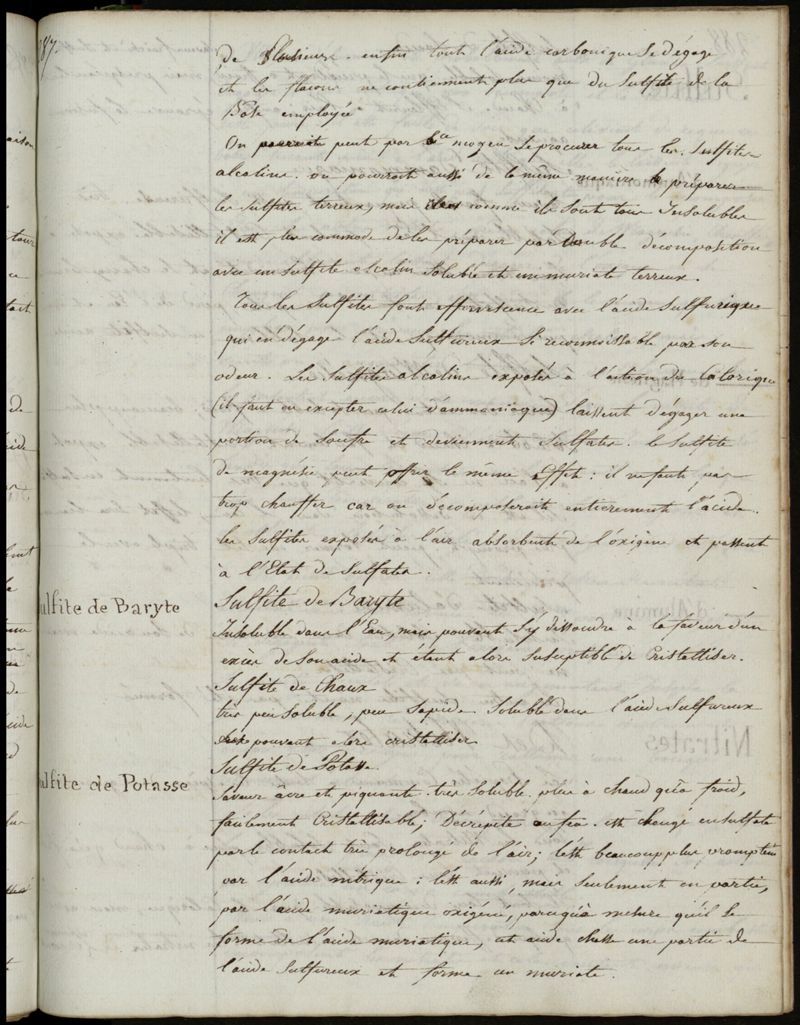 187.
de plusieurs. enfin tout l'acide carbonique se dégage
et les flacons ne contiennent plus que du sulfite de la
Base employée
On peut par ce moyen se procurer tous les sulfites
alcalins. on pourrait aussi de la même manière préparer
les sulfites terreux, mais comme ils sont tous Insolubles
il est plus commode de les préparer par double décomposition
avec un sulfite alcalin soluble et un muriate terreux.
Tous les sulfites font effervescence avec l'acide sulfurique
qui en dégage l'acide sulfureux si reconnoissable par son
odeur. Les sulfites alcalins exposés à l'action du calorique
(il faut en excepter celui d'ammoniaque) laissent dégager une
portion de soufre et deviennent sulfates. le sulfite
de magnésie peut offrir le même effet: il ne faut pas
trop chauffer car on décomposerait entierement l'acide.
les sulfites exposés à l'air absorbent de l'oxigène et passent
à l'Etat de sulfates.
ulfite de Baryte
Sulfite de Baryte
Insoluble dans l'Eau, mais pouvant s'y dissoudre à la faveur d'un
excès de son acide et étant alors susceptible de Cristalliser.
Sulfite de Chaux
très peu soluble, peu sapide soluble dans l'acide sulfureux
pouvant alors cristalliser
ulfite de Potasse
Sulfite de Potasse
saveur âcre et piquante. très soluble. plus à chaud qu'à froid,
facilement Cristallisable; Décrépite au feu. est changé en sulfate
par le contact très prolongé de l'air; l'est beaucoup plus promptement
par l'acide nitrique; l'est aussi, mais seulement en partie,
par l'acide muriatique oxigéné, parcequ'à mesure qu'il se
forme de l'acide muriatique, cet acide chasse une partie de
l'acide sulfureux et forme un muriate.